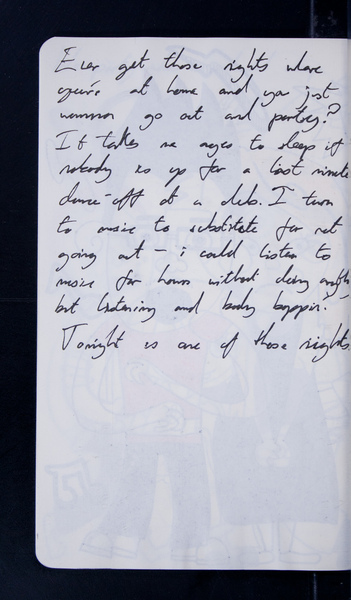 Ever get those nights where
you're at home and you just
wanna go out and partey?
It takes me ages to sleep if
nobody is up for a last minute
dance-off at a club. I turn
to music to substitute for not
going out – i could listen to
music for hours without doing anyth
but listening and body boppin'.
Tonight is one of those nights.